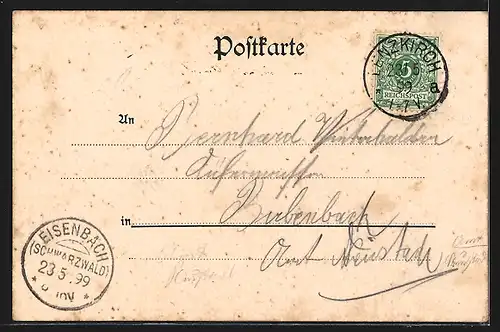 Postkarte
LENZKIRCH
5
REICHSPOST
99
An Bernhard Winterhalder
Küfermeister
in Bubenbach
Amt Neustadt
EISENBACH
(SCHWARZWALD)
23.5.99